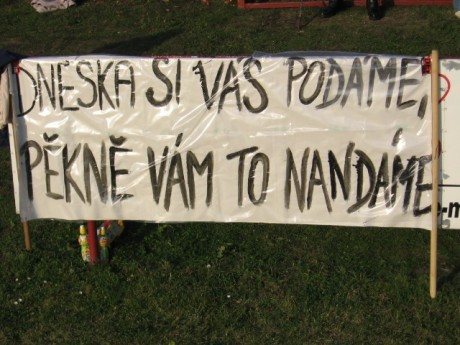 DNESKA SI VÁS PODÁME,
PĚKNĚ VÁM TO NANDÁME